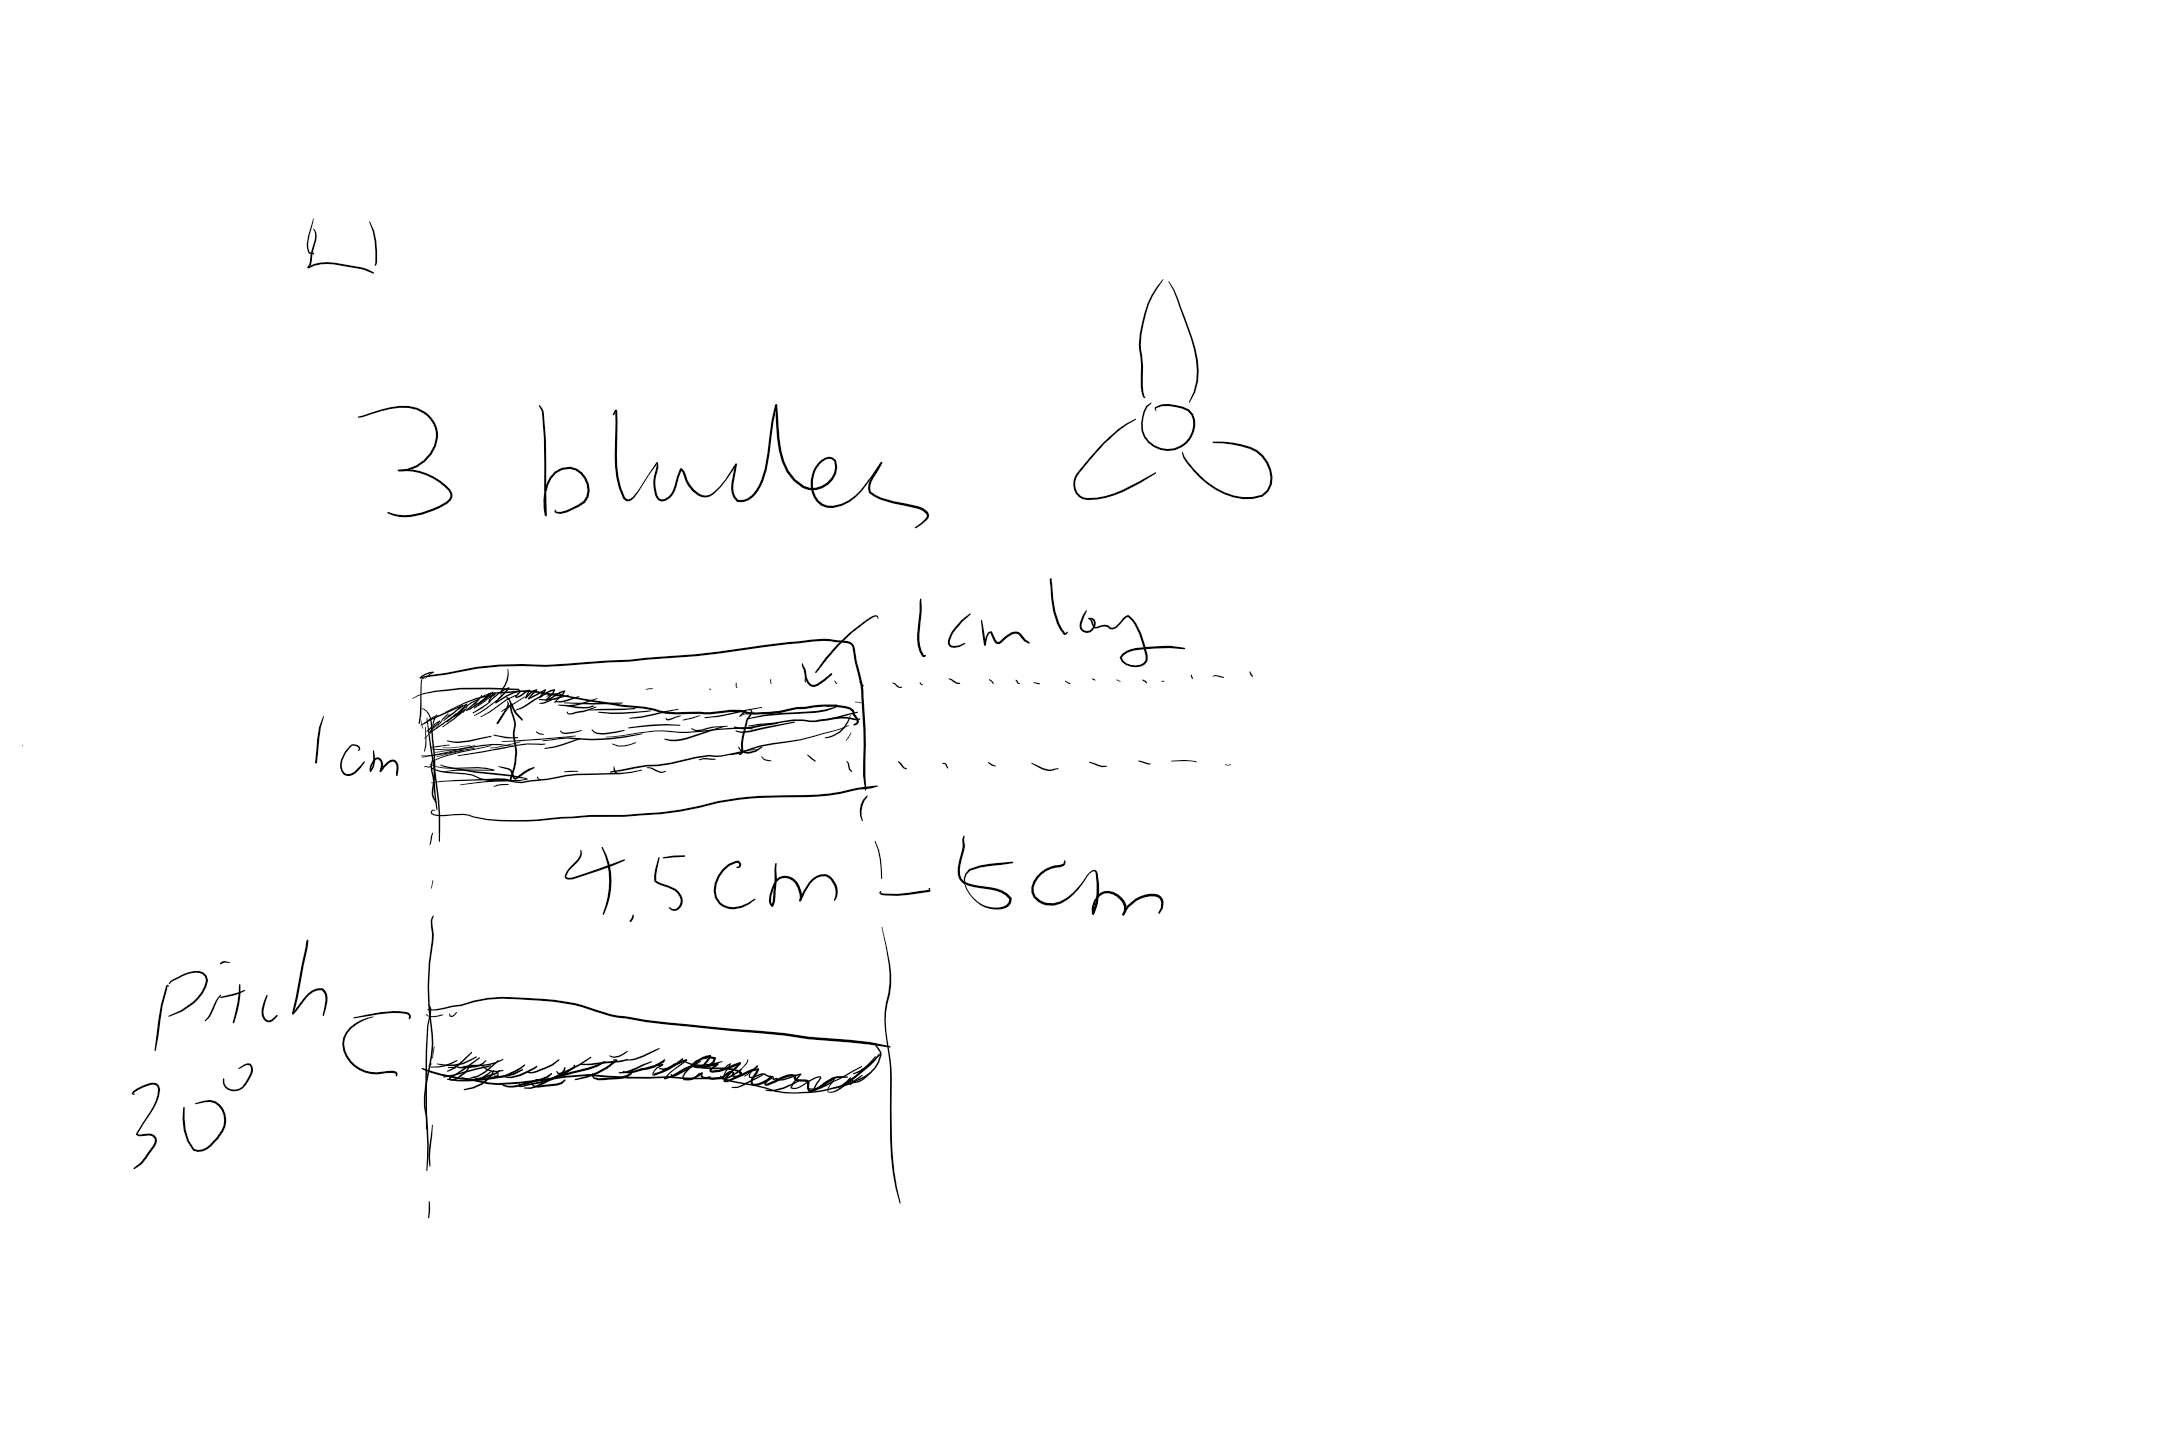 3 blades
1cm long
1cm
4.5cm - 5cm
Pitch
30°